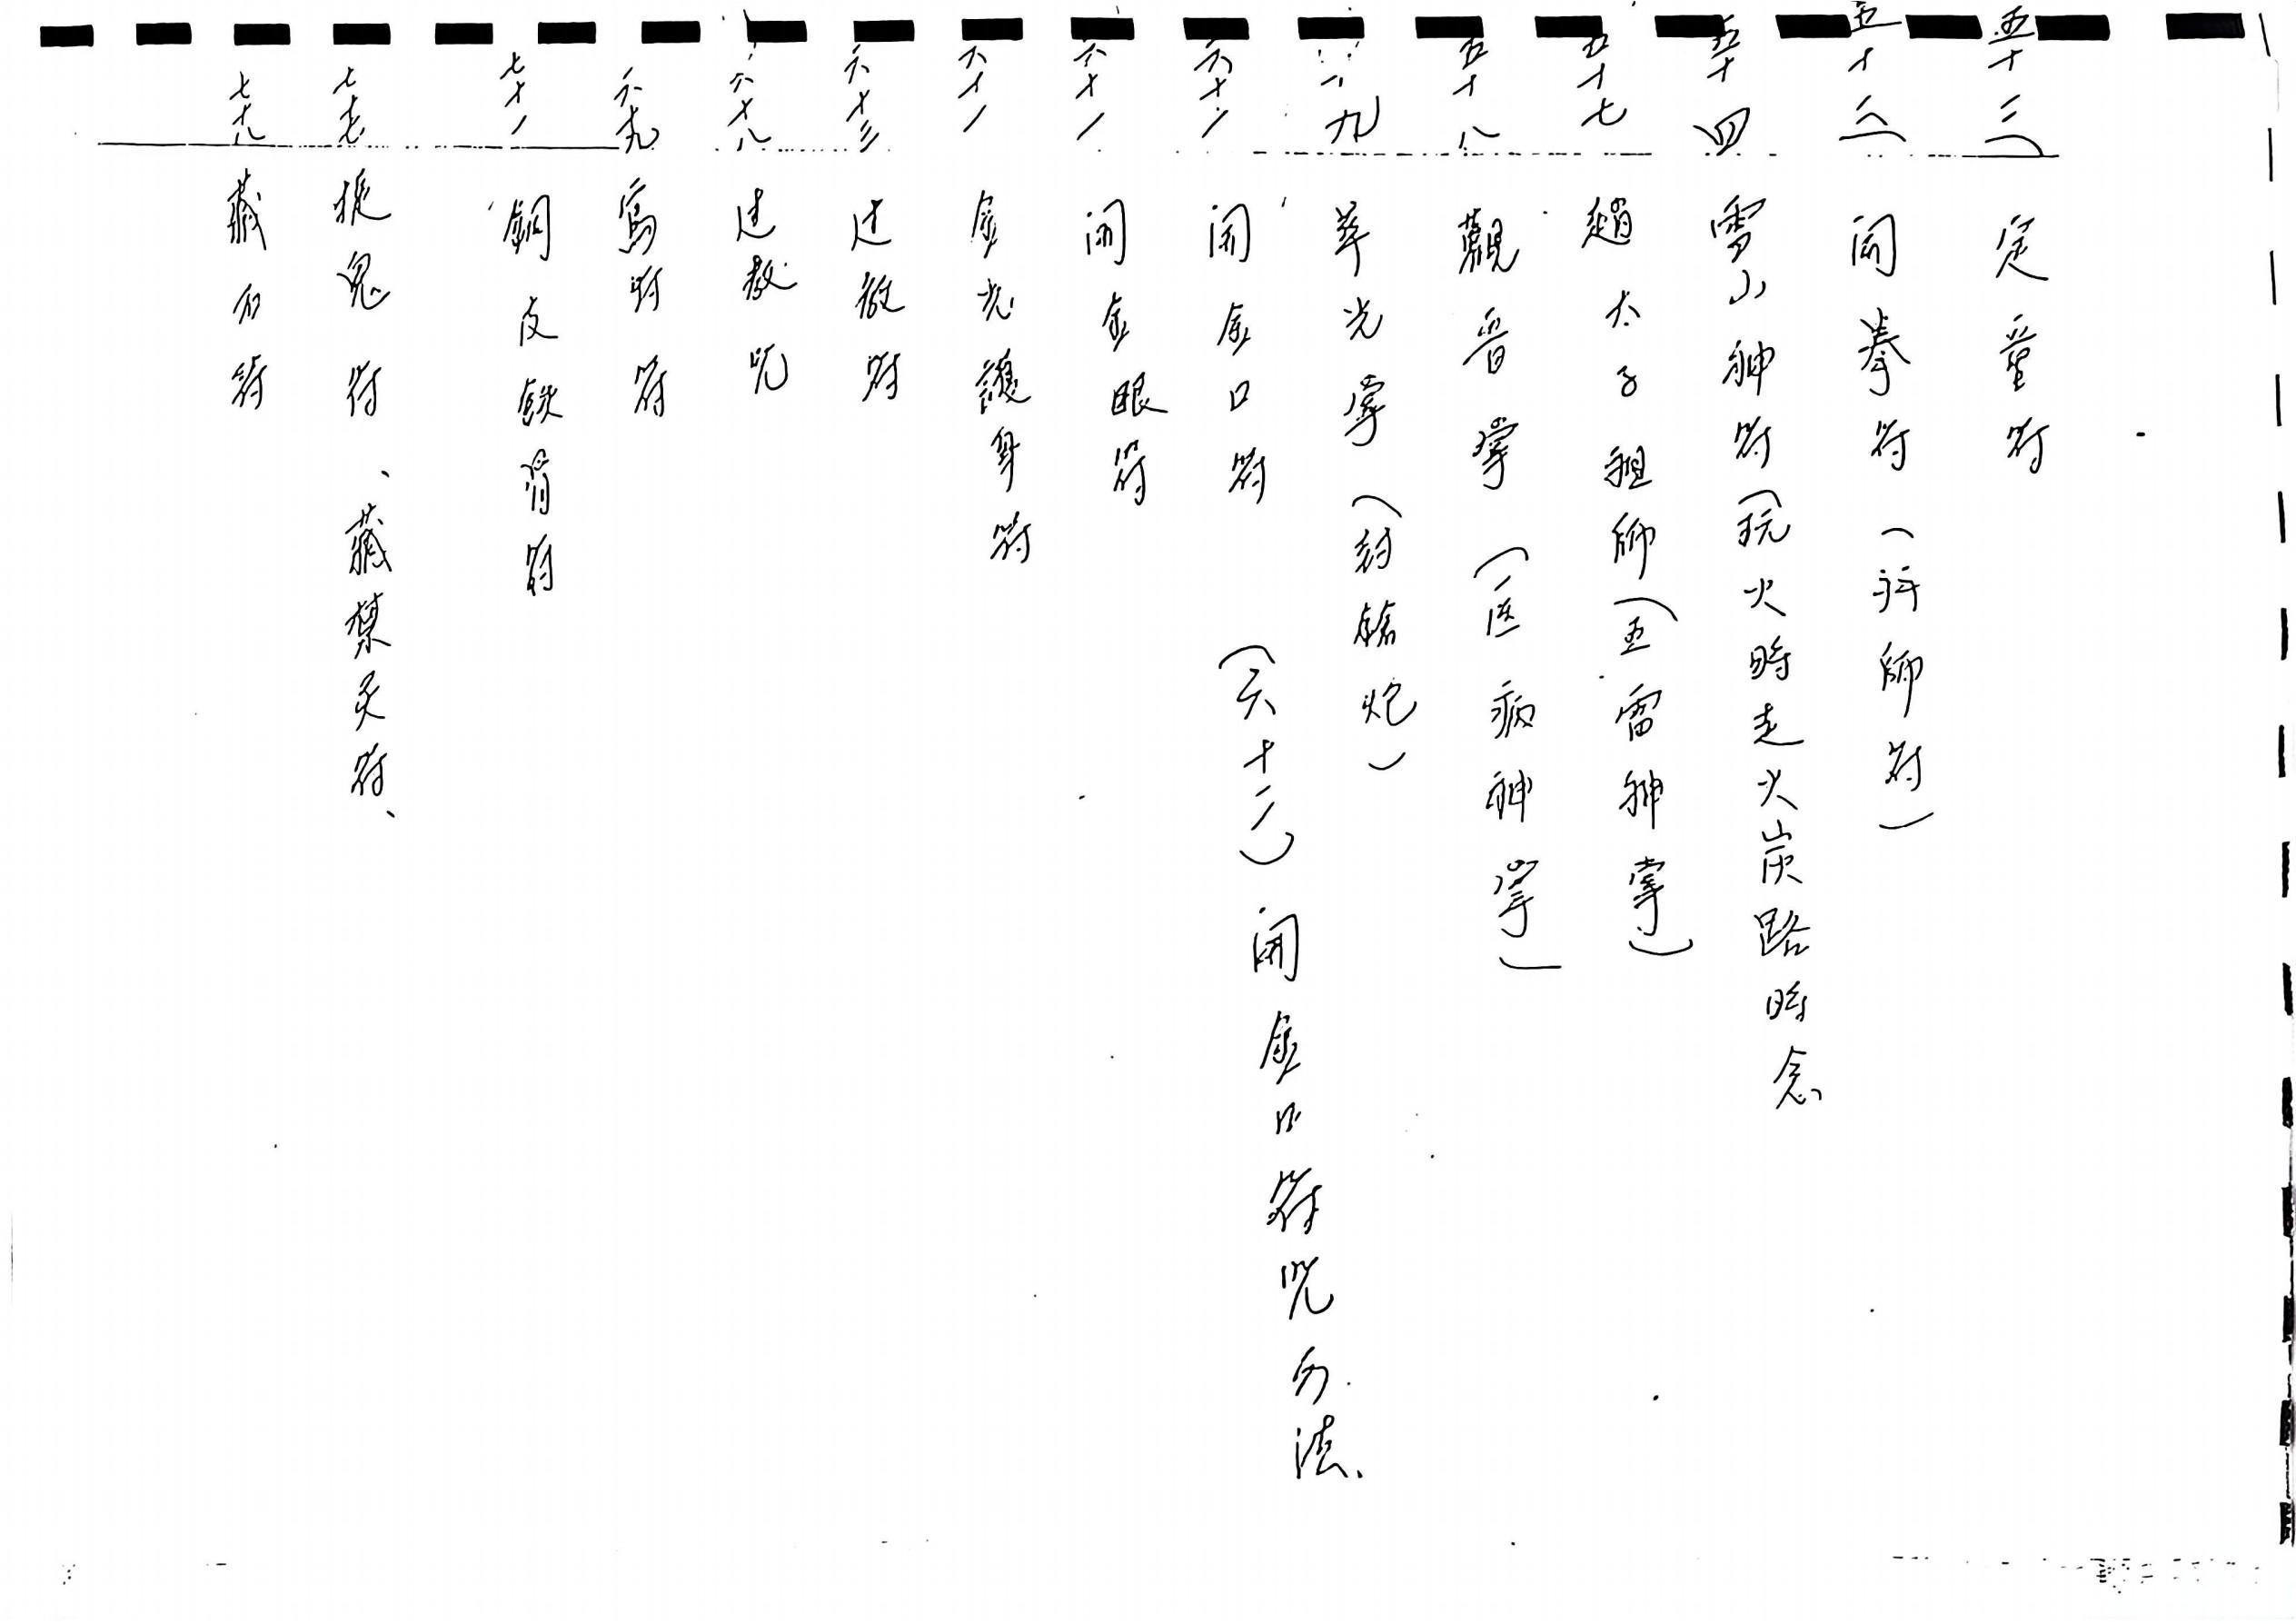 五十三 定童符
五十三 開拳符（拜師符）
五十四 雪山神符（玩火時走火炭路時念
五十七 趙太子祖師（五雷神掌）
五十八 觀音掌（医病神掌）
九 華光掌（封鎗炮）
六十二 開金口符 （六十二）開金口符咒办法
六十一 開金眼符
六十一 金光護身符
六十三 过教符
六十八 过教咒
六十九 符
七十一 銅皮鉄骨符
七十七 捉鬼符、藏禁灵符、
七十八 藏符